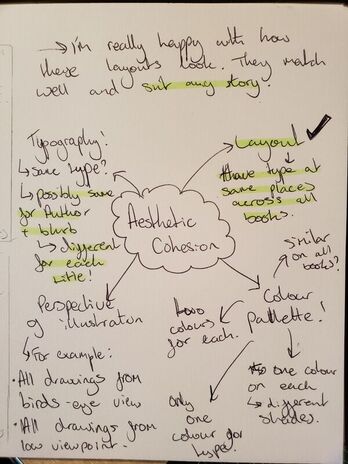 → I'm really happy with how
these layouts look. They match
well and suit any story.
Typography!
↳ same type?
↳ Possibly same
for Author
+ blurb
↳ different
for each
title!
Layout ✓
Have type at
same places
across all
books.
Aesthetic
Cohesion
Perspective
of illustration
↳ For example:
• All drawings from
birds-eye view
• All drawings from
low viewpoint.
Colour
pallette!
Similar
on all
books?
two
colours
for each.
one colour
on each
↳ different
shades.
only
one
colour for
type.